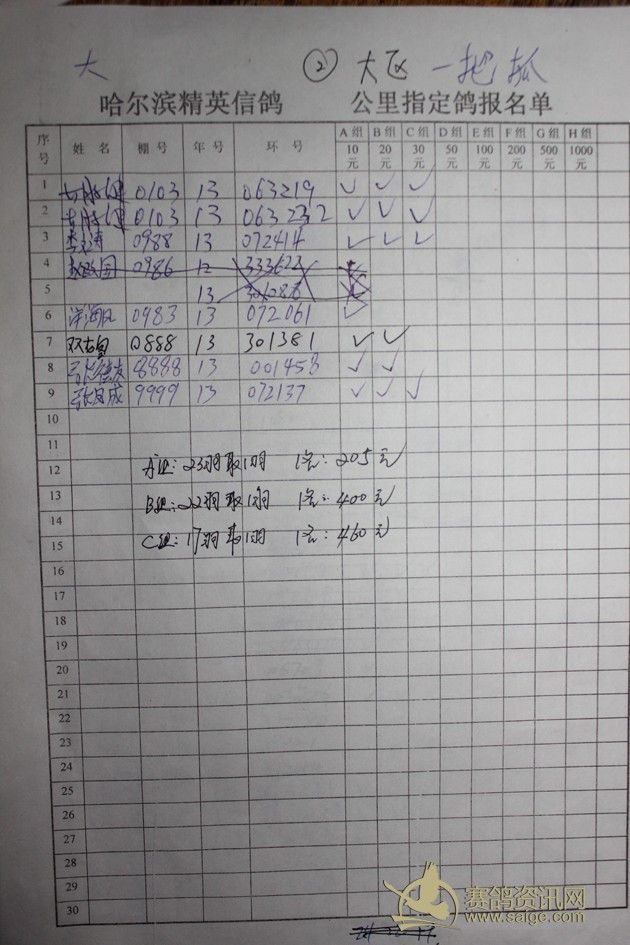 大 ② 大区 一把抓
哈尔滨精英信鸽 公里指定鸽报名单
序号 姓 名 棚 号 年 号 环 号 A组 B组 C组 D组 E组 F组 G组 H组
10元 20元 30元 50元 100元 200元 500元 1000元
1 0103 13 063219 ✓ ✓ ✓
2 0103 13 063232 ✓ ✓ ✓
3 0988 13 072414 ✓ ✓ ✓
4 0986 12 333622
5 13
6 0983 13 072061 ✓
7 0888 13 301381 ✓ ✓
8 8888 13 001453 ✓ ✓
9 9999 13 072137 ✓ ✓ ✓
10
11
12 A组:23羽取1羽 1名:205元
13 B组:22羽取1羽 1名:400元
14
15 C组:17羽取1羽 1名:460元
16
17
18
19
20
21
22
23
24
25
26
27
28
29
30
赛鸽资讯网
www.saige.com